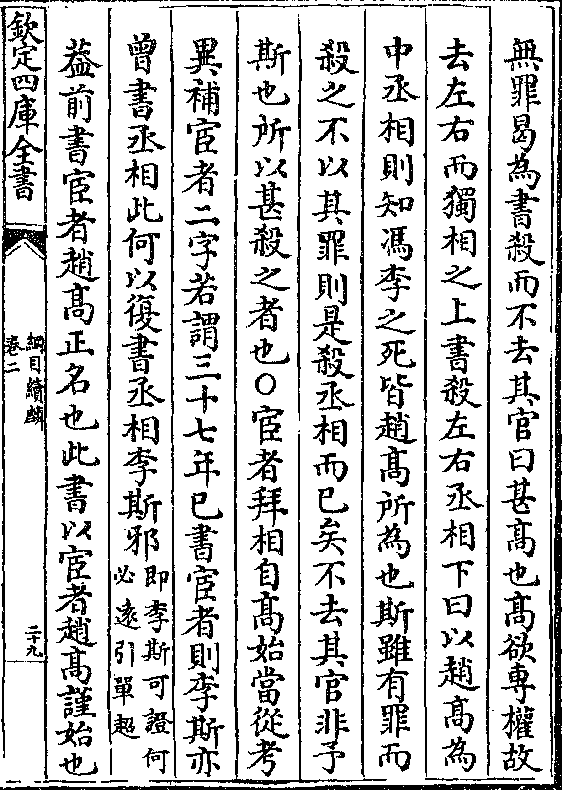 無罪曷為書殺而不去其官曰甚高也高欲專權故
去左右而獨相之上書殺左右丞相下曰以趙高為
中丞相則知馮李之死皆趙高所為也斯雖有罪而
殺之不以其罪則是殺丞相而已矣不去其官非予
斯也所以甚殺之者也○宦者拜相自高始當從考
異補宦者二字若謂三十七年已書宦者則李斯亦
曾書丞相此何以復書丞相李斯邪即李斯可證何必遠引單超
葢前書宦者趙高正名也此書以宦者趙高謹始也
欽定四庫全書
綱目續麟
卷二
二十九